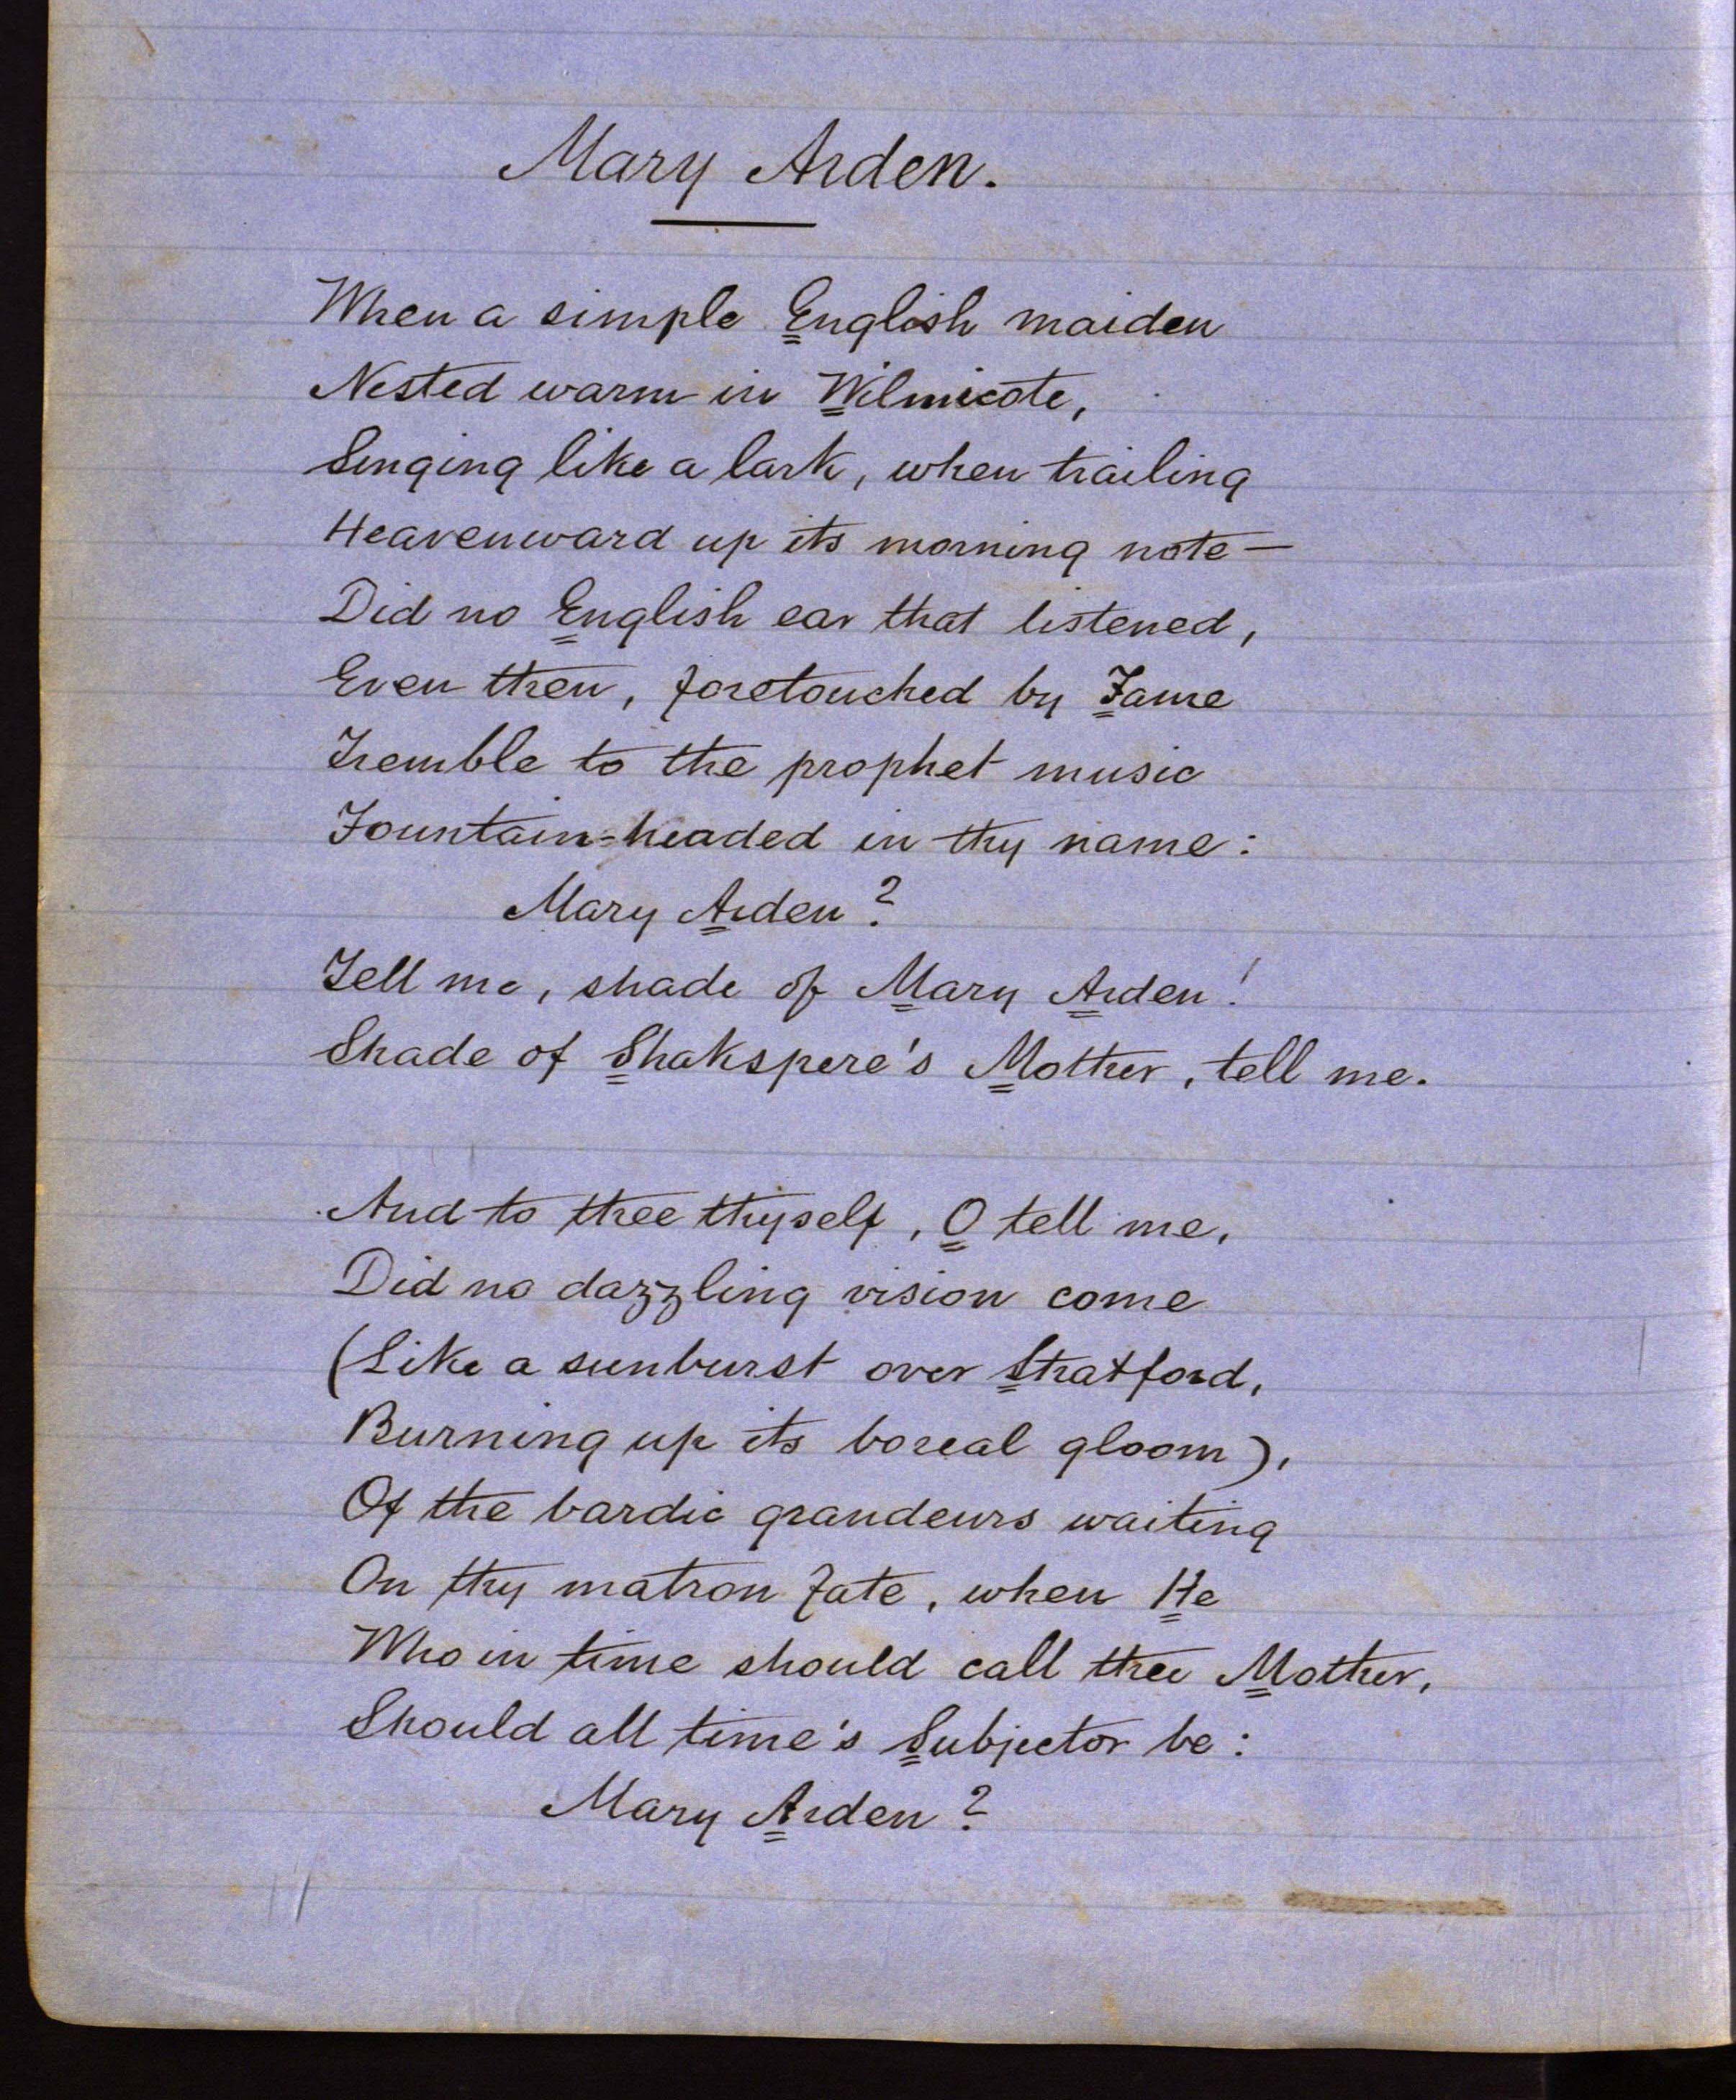 Mary Arden.
When a simple English maiden
Nested warm in Wilmicote,
Singing like a lark, when trailing
Heavenward up its morning note—
Did no English ear that listened,
Even then, foretouched by Fame
Tremble to the prophet music
Fountain-headed in thy name:
Mary Arden?
Tell me, shade of Mary Arden!
Shade of Shakspere's Mother, tell me.
And to thee thyself, O tell me,
Did no dazzling vision come
(Like a sunburst over Stratford,
Burning up its boreal gloom),
Of the bardic grandeurs waiting
On thy matron fate, when He
Who in time should call thee Mother,
Should all time's Subjector be:
Mary Arden?